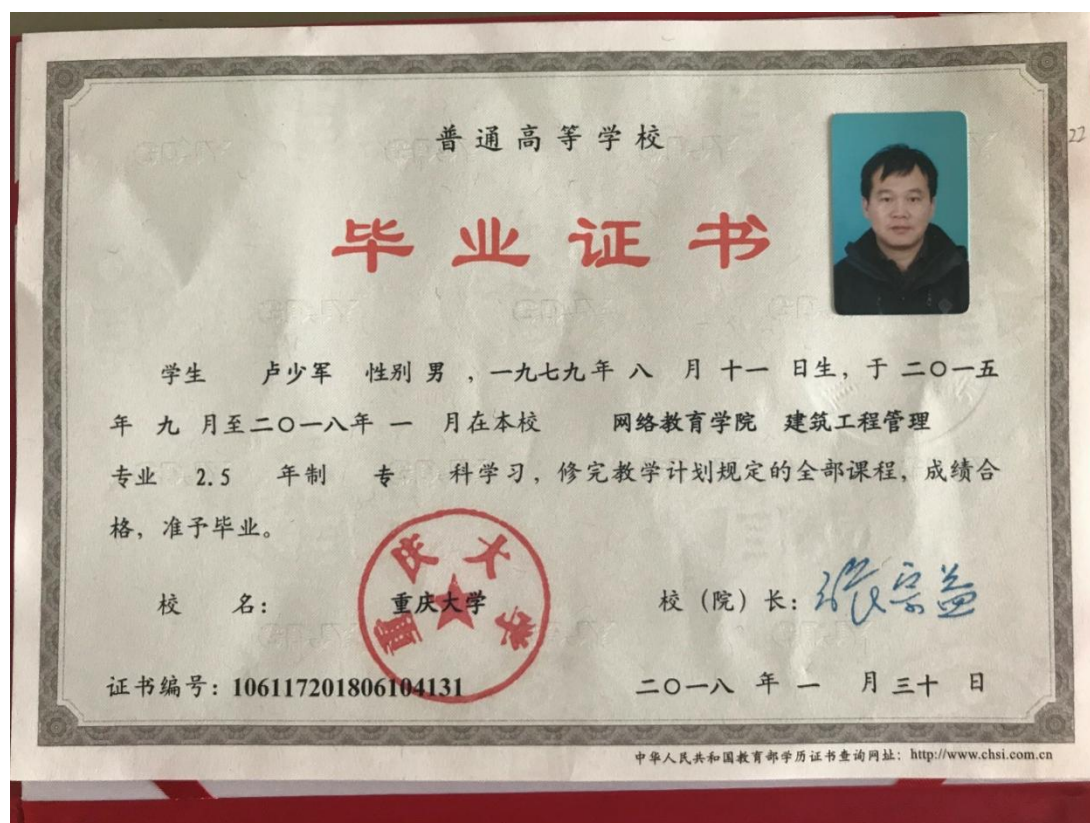 普通高等学校
毕业证书
学生 卢少军 性别 男 ，一九七九年 八 月 十一 日生，于 二〇一五
年 九 月至二〇一八年 一 月在本校 网络教育学院 建筑工程管理
专业 2.5 年制 专 科学习，修完教学计划规定的全部课程，成绩合
格，准予毕业。
校 名： 重庆大学
重庆大学
校（院）长：张宗益
证书编号：106117201806104131
二〇一八 年 一 月 三十 日
中华人民共和国教育部学历证书查询网址：http://www.chsi.com.cn
22